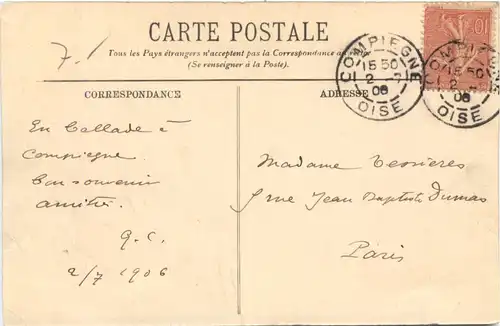 7.1
CARTE POSTALE
Tous les Pays étrangers n'acceptent pas la Correspondance au
(Se renseigner à la Poste).
CORRESPONDANCE
ADRESSE
COMPIEGNE
15 50
2 -7
06
OISE
COMPIEGNE
15 50
2 -7
06
OISE
10
En Ballade à
Compiegne
Bon souvenir
amitiés.
G.C.
2/7 1906
Madame Tessières
rue Jean Baptiste Dumas
Paris